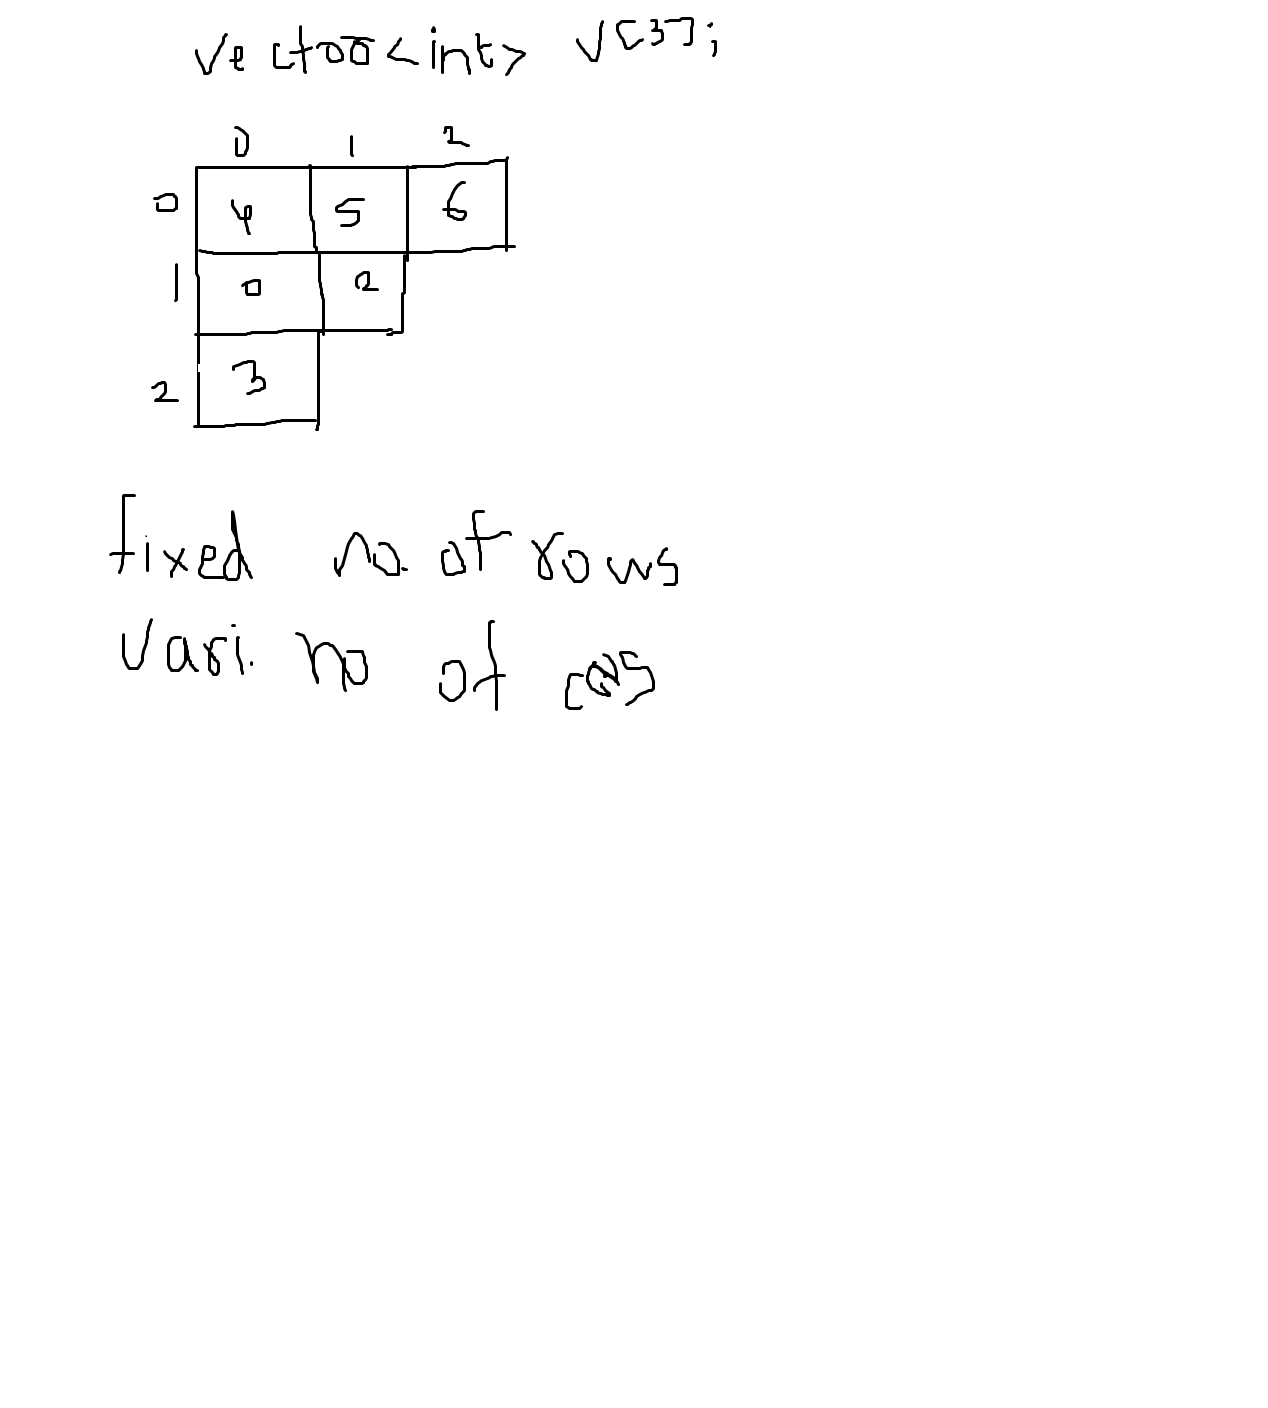 vector<int> v[3];
0 1 2
0 4 5 6
1 0 2
2 3
fixed no. of rows
Vari. no of cols